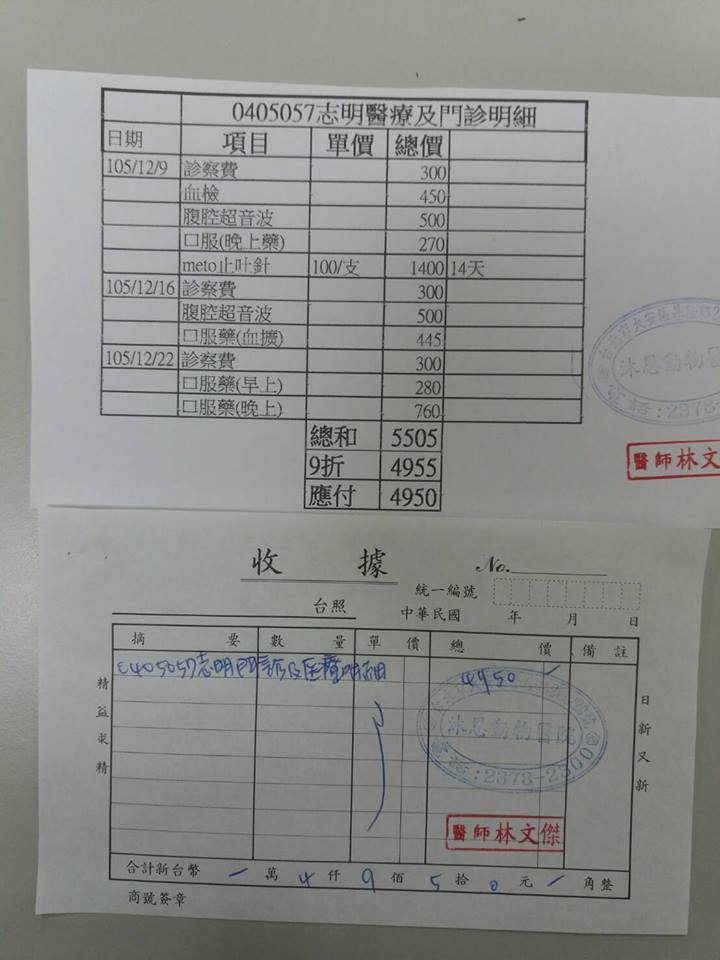 0405057志明醫療及門診明細
日期 項目 單價 總價
105/12/9 診察費 300
血檢 450
腹腔超音波 500
口服(晚上藥) 270
meto止吐針 100/支 1400 14天
105/12/16 診察費 300
腹腔超音波 500
口服藥(血擴) 445
105/12/22 診察費 300
口服藥(早上) 280
口服藥(晚上) 760
總和 5505
9折 4955
應付 4950
沐恩動物醫
電話:2378-
醫師林文
收據 No.
統一編號
台照 中華民國 年 月 日
摘要 數量 單價 總價 備註
0405057志明門診及医療明細 4950
沐恩動物醫院
電話:2378-2300
醫師林文傑
精益求精
日新又新
合計新台幣 萬 4 仟 9 佰 5 拾 0 元 角整
商號簽章